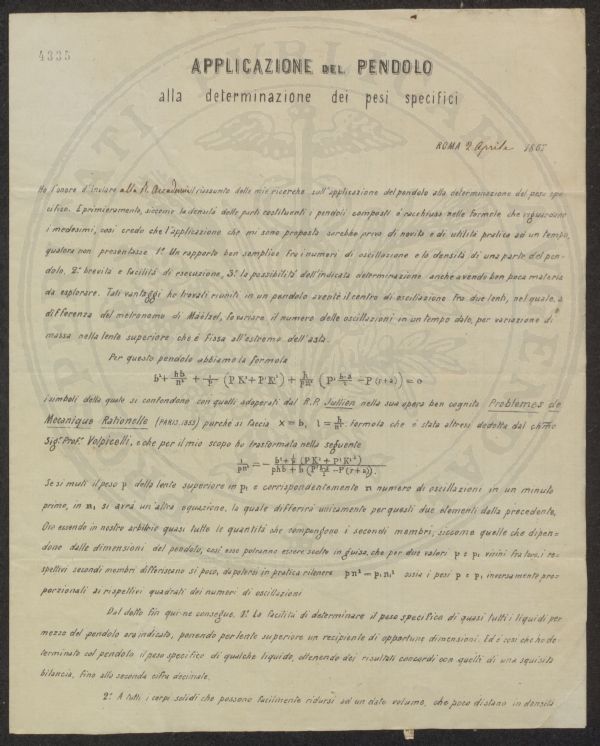 4335
APPLICAZIONE DEL PENDOLO
alla determinazione dei pesi specifici
ROMA 2 Aprile 1865
Ho l'onore d'inviare alla R. Accademia il riassunto delle mie ricerche sull'applicazione del pendolo alla determinazione del peso spe-
cifico. E primieramente, siccome la densità delle parti costituenti i pendoli composti è racchiusa nelle formole che riguardano
i medesimi, così credo che l'applicazione che mi sono proposta sarebbe priva di novità e di utilità pratica ad un tempo,
qualora non presentasse 1.º Un rapporto ben semplice fra i numeri di oscillazione e la densità di una parte del pen-
dolo, 2.º brevità e facilità di esecuzione, 3.º la possibilità dell'indicata determinazione anche avendo ben poca materia
da esplorare. Tali vantaggi ho trovati riuniti in un pendolo avente il centro di oscillazione fra due lenti, nel quale, a
differenza del metronomo di Maëlzel, fo variare il numero delle oscillazioni in un tempo dato, per variazione di
massa nella lente superiore che è fissa all'estremo dell'asta.
Per questo pendolo abbiamo la formola
i simboli della quale si confondono con quelli adoperati dal R.P. Jullien nella sua opera ben cognita Problèmes de
Mécanique Rationelle (PARIS.1855) purchè si faccia x = b, l = h/n². formola che è stata altresì dedotta dal chmo
Sig.r Prof.r Volpicelli, e che per il mio scopo ho trasformata nella seguente
Se si muti il peso p della lente superiore in p₁ e corrispondentemente n numero di oscillazioni in un minuto
primo, in n₁ si avrà un'altra equazione, la quale differirà unicamente per questi due elementi dalla precedente.
Ora essendo in nostro arbitrio quasi tutte le quantità che compongono i secondi membri, siccome quelle che dipen-
dono dalle dimensioni del pendolo, così esse potranno essere scelte in guisa, che per due valori p e p₁ vicini fra loro, i re-
spettivi secondi membri differiscano sì poco, da potersi in pratica ritenere pn² = p₁n₁² ossia i pesi p e p₁ inversamente pro-
porzionali ai rispettivi quadrati dei numeri di oscillazioni
Dal detto fin qui ne consegue. 1.º La facilità di determinare il peso specifico di quasi tutti i liquidi per
mezzo del pendolo ora indicato, ponendo per lente superiore un recipiente di opportune dimensioni. Ed è così che ho de-
terminato col pendolo il peso specifico di qualche liquido, ottenendo dei risultati concordi con quelli di una squisita
bilancia, fino alla seconda cifra decimale.
2.º A tutti i corpi solidi che possono facilmente ridursi ad un dato volume, che poco distano in densità